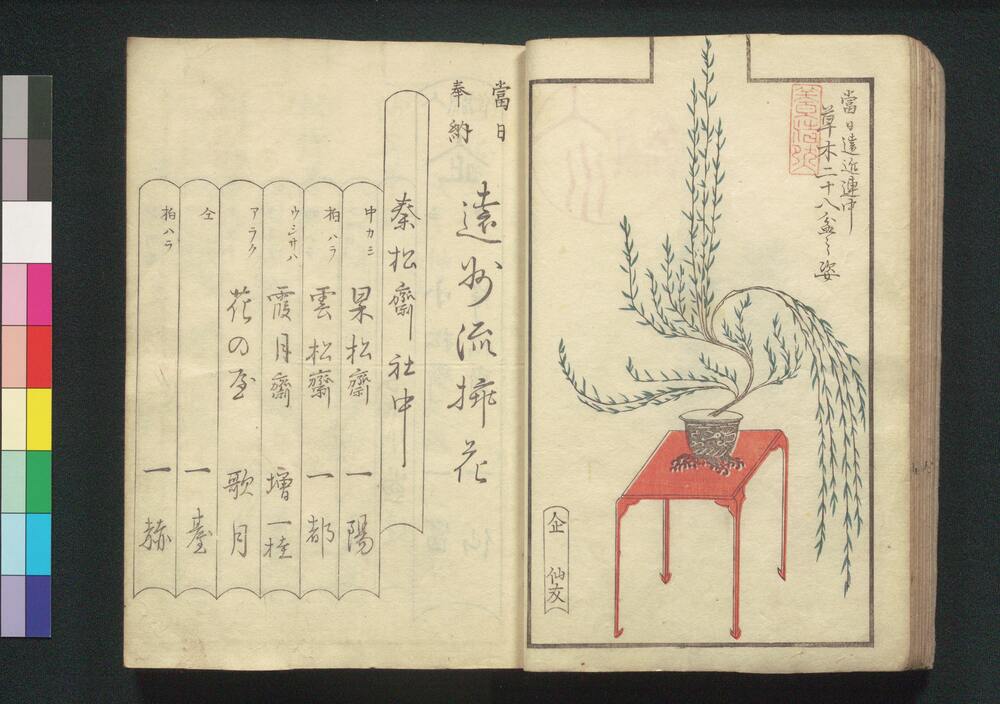 當日遠近連中
草木二十八盆之姿
企 仙友
當日
奉納
遠州流挿花
秦松齋社中
中カシ 杲松齋 一陽
柏ハラ 雲松齋 一都
ウシサハ 霞月齋 増一桂
アラク 花の屋 歌月
仝 一臺
柏ハラ 一赫